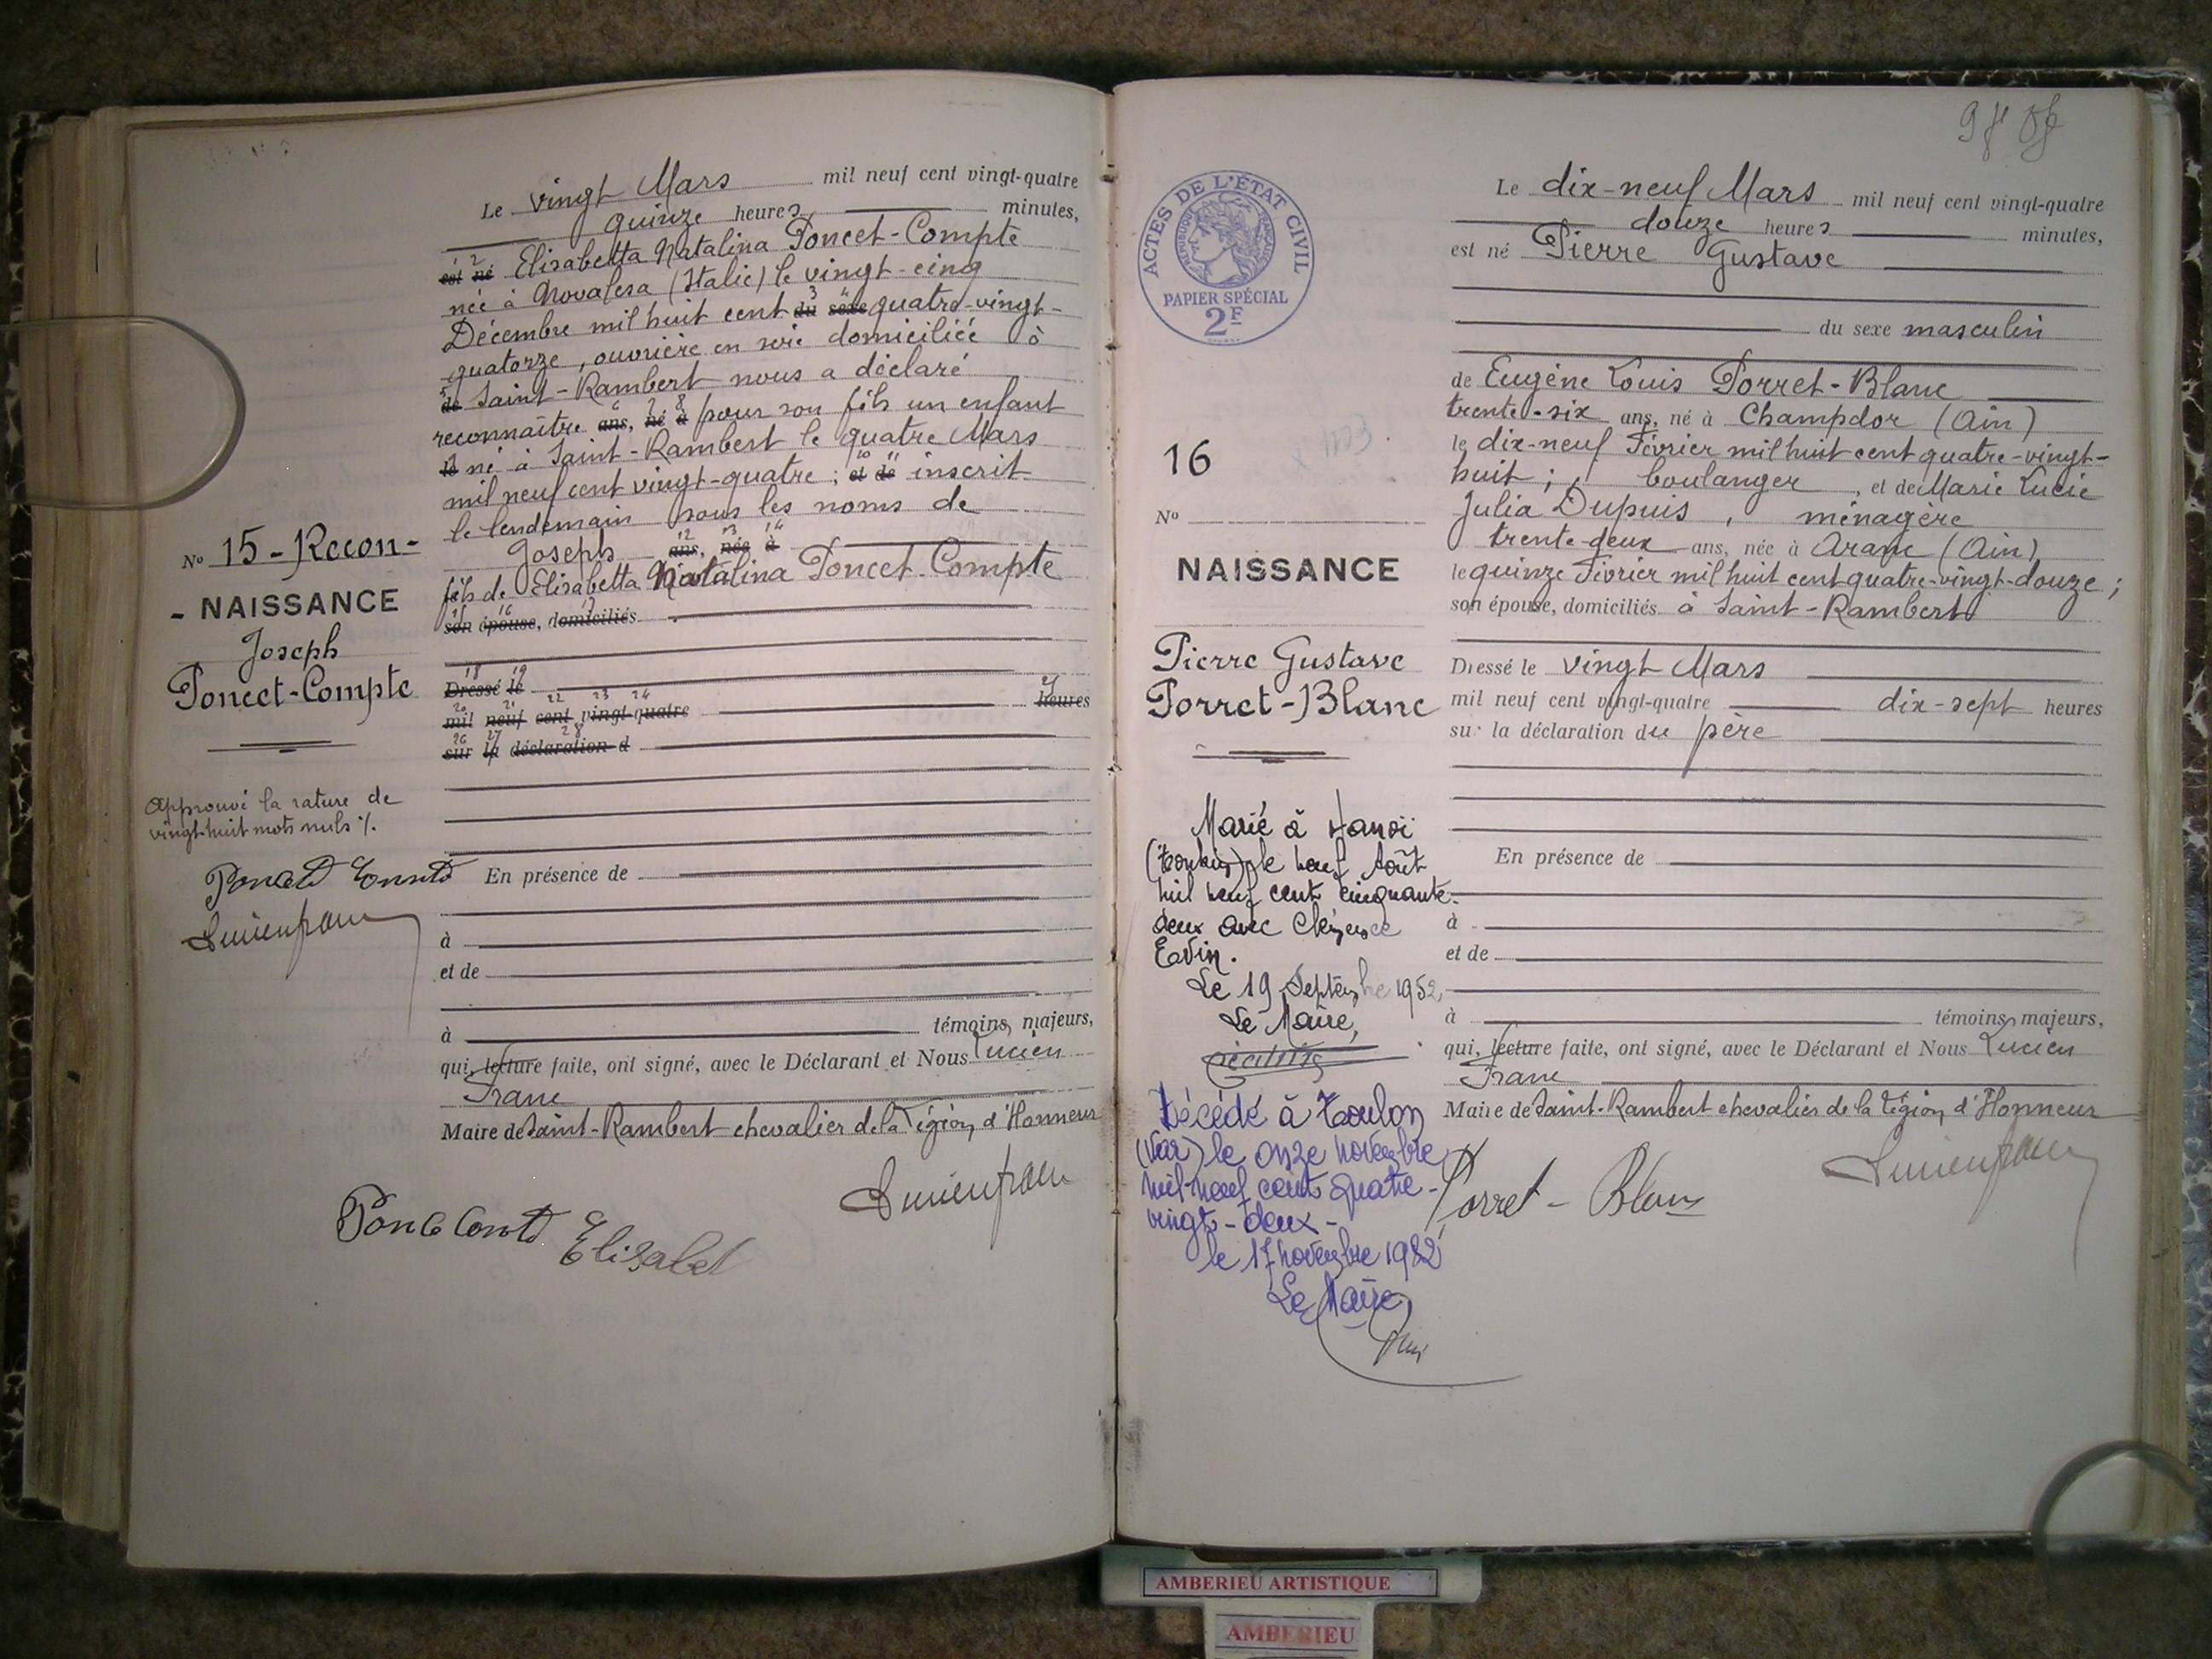 Le vingt Mars mil neuf cent vingt-quatre
quinze heures minutes,
est né Elisabetta Natalina Poncet-Compte
née à Novalesa (Italie) le vingt-cinq
Décembre mil huit cent du sexe quatre-vingt-
quatorze, ouvrière en soie domiciliée à
de Saint-Rambert nous a déclaré
reconnaître ans, né à pour son fils un enfant
le né à Saint-Rambert le quatre Mars
mil neuf cent vingt-quatre ; et de inscrit
le lendemain sous les noms de
Joseph ans, née à
fils de Elisabetta Natalina Poncet-Compte
son épouse, domiciliés
Dressé le
mil neuf cent vingt-quatre heures
sur la déclaration d
En présence de
à
et de
à témoins majeurs,
qui, lecture faite, ont signé, avec le Déclarant et Nous Lucien
Franc
Maire de Saint-Rambert chevalier de la Légion d'Honneur
Elisabet
No 15 - Recon-
- NAISSANCE
Joseph
Poncet-Compte
Approuvé la rature de
vingt-huit mots nuls ./.
ACTES DE L'ÉTAT CIVIL
RÉPUBLIQUE FRANÇAISE
PAPIER SPÉCIAL
2F
16
No
NAISSANCE
Pierre Gustave
Porret-Blanc
Marié à Hanoï
(Tonkin) le neuf Août
mil neuf cent cinquante-
deux avec Clémence
Le 19 Septembre 1952,
Le Maire,
Décédé à Toulon
(Var) le onze novembre
mil neuf cent quatre-
vingt-deux-
le 17 novembre 1982
Le Maire,
Le dix-neuf Mars mil neuf cent vingt-quatre
douze heures minutes,
est né Pierre Gustave
du sexe masculin
de Eugène Louis Porret-Blanc
trente-six ans, né à Champdor (Ain)
le dix-neuf Février mil huit cent quatre-vingt-
huit ; boulanger, et de Marie Lucie
Julia Dupuis, ménagère
trente-deux ans, née à Aranc (Ain)
le quinze Février mil huit cent quatre-vingt-douze ;
son épouse, domiciliés à Saint-Rambert
Dressé le vingt Mars
mil neuf cent vingt-quatre dix-sept heures
sur la déclaration du père
En présence de
à
et de
à témoins majeurs,
qui, lecture faite, ont signé, avec le Déclarant et Nous Lucien
Franc
Maire de Saint-Rambert chevalier de la Légion d'Honneur
Porret-Blanc
AMBERIEU ARTISTIQUE
AMBERIEU